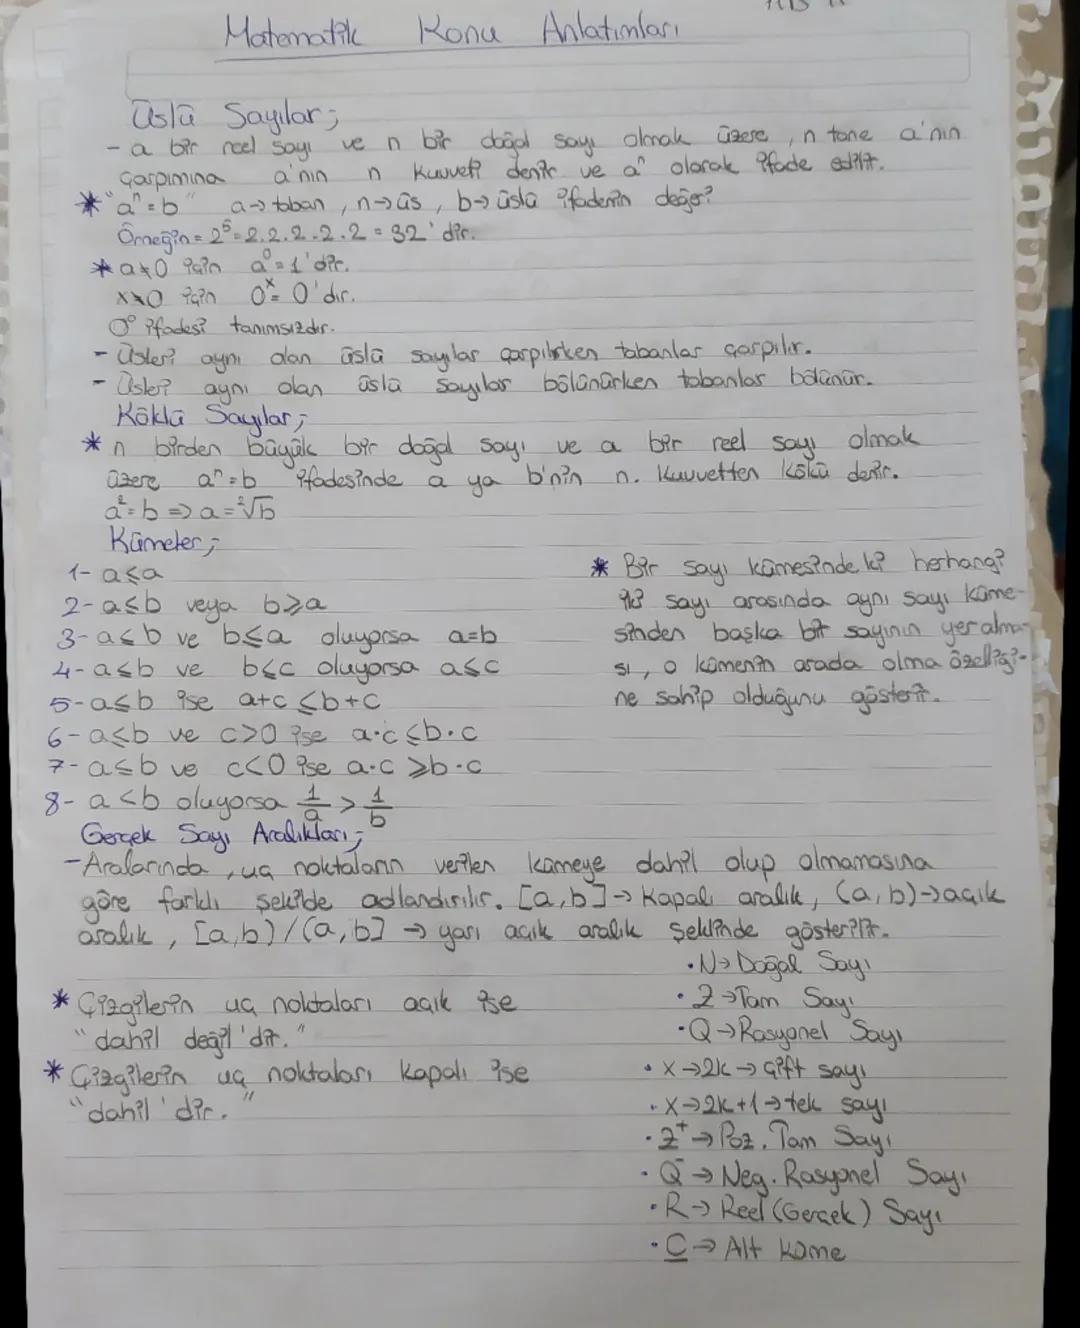 Matematik Konu Anlatımları
Üslü Sayılar;
- a bir reel sayı ve n bir doğal sayı olmak üzere, n tane a'nın
çarpımına a'nın n kuvveti denir ve aⁿ olarak ifade edilir.
* "aⁿ=b" a→taban, n→üs, b→üslü ifadenin değeri
Örneğin = 2⁵=2.2.2.2.2 = 32'dir.
* a≠0 için a⁰=1'dir.
x≠0 için 0ˣ=0'dır.
0⁰ ifadesi tanımsızdır.
- Üsleri aynı olan üslü sayılar çarpılırken tabanlar çarpılır.
- Üsleri aynı olan üslü sayılar bölünürken tabanlar bölünür.
Köklü Sayılar;
* n birden büyük bir doğal sayı ve a bir reel sayı olmak
üzere aⁿ=b ifadesinde a ya b'nin n. kuvvetten kökü denir.
a²=b ⇒ a=²√b
Kümeler;
1- a≤a
2- a≤b veya b≥a
3- a≤b ve b≤a oluyorsa a=b
4- a≤b ve b≤c oluyorsa a≤c
5- a≤b ise a+c≤b+c
6- a≤b ve c>0 ise a·c≤b·c
7- a≤b ve c<0 ise a·c≥b·c
8- a<b oluyorsa 1/a > 1/b
* Bir sayı kümesinde ki herhangi
iki sayı arasında aynı sayı küme-
sinden başka bir sayının yer alma-
sı, o kümenin arada olma özelliği-
ne sahip olduğunu gösterir.
Gerçek Sayı Aralıkları;
- Aralarında, uç noktaların verilen kümeye dahil olup olmamasına
göre farklı şekilde adlandırılır. [a,b]→Kapalı aralık, (a,b)→açık
aralık, [a,b)/(a,b] → yarı açık aralık şeklinde gösterilir.
* Çizgilerin uç noktaları açık ise
"dahil değil'dir."
* Çizgilerin uç noktaları kapalı ise
"dahil'dir."
·N→Doğal Sayı
·Z→Tam Sayı
·Q→Rasyonel Sayı
·X→2k→çift sayı
·X→2k+1→tek sayı
·Z⁺→Poz. Tam Sayı
·Q⁻→Neg. Rasyonel Sayı
·R→Reel (Gerçek) Sayı
·⊆→Alt Küme